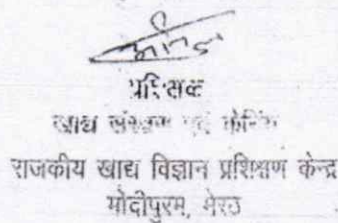 प्रशिक्षक
खाद्य संरक्षण एवं कैनिंग
राजकीय खाद्य विज्ञान प्रशिक्षण केन्द्र
मोदीपुरम, मेरठ